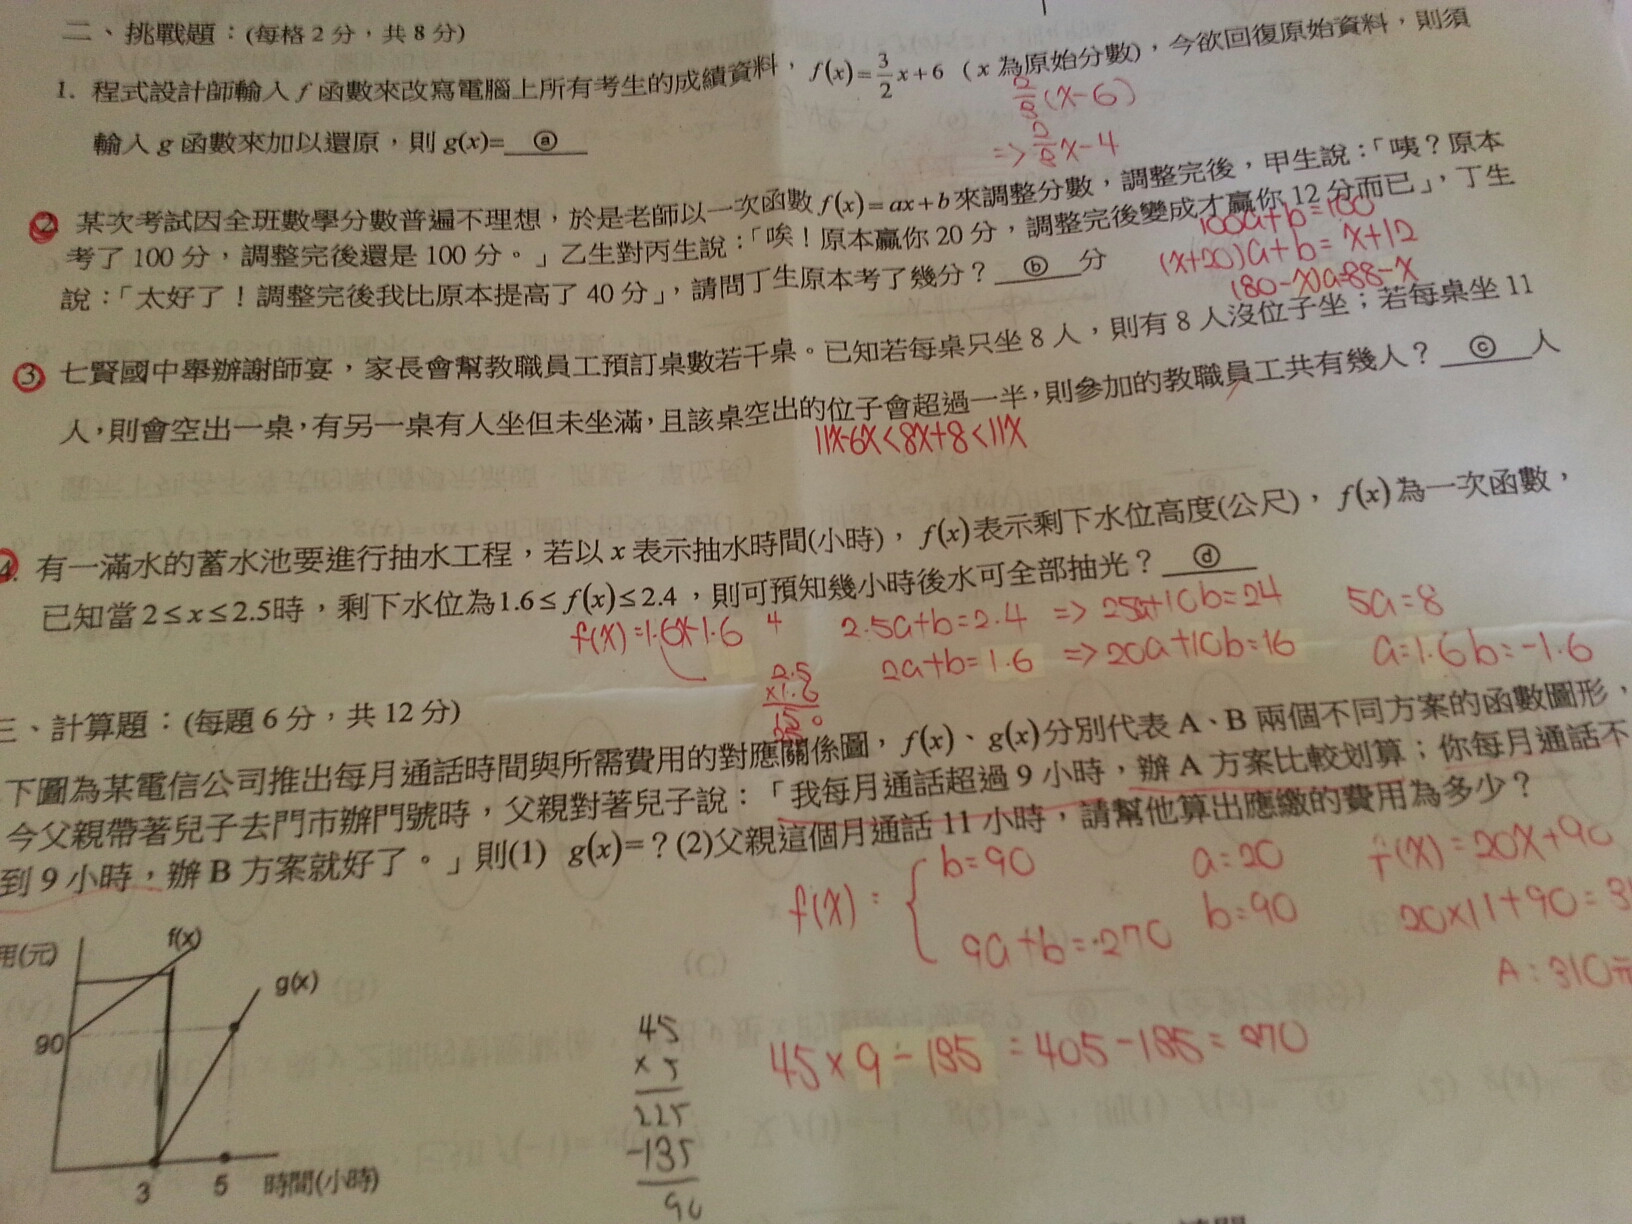 二、挑戰題：(每格2分，共8分)
1. 程式設計師輸入 f 函數來改寫電腦上所有考生的成績資料，f(x)=3/2x+6 (x 為原始分數)，今欲回復原始資料，則須
(x-6)
輸入 g 函數來加以還原，則 g(x)= ⓐ
x-4
2. 某次考試因全班數學分數普遍不理想，於是老師以一次函數 f(x)=ax+b 來調整分數，調整完後，甲生說：「咦？原本
考了100分，調整完後還是100分。」乙生對丙生說：「唉！原本贏你20分，調整完後變成才贏你12分而已」，丁生
100a+b=100
說：「太好了！調整完後我比原本提高了40分」，請問丁生原本考了幾分？ ⓑ 分
(x+20)a+b=x+12
(80-x)a=88-x
3. 七賢國中舉辦謝師宴，家長會幫教職員工預訂桌數若干桌。已知若每桌只坐8人，則有8人沒位子坐；若每桌坐11
人，則會空出一桌，有另一桌有人坐但未坐滿，且該桌空出的位子會超過一半，則參加的教職員工共有幾人？ ⓒ 人
11x-6x<8x+8<11x
4. 有一滿水的蓄水池要進行抽水工程，若以 x 表示抽水時間(小時)，f(x)表示剩下水位高度(公尺)，f(x)為一次函數，
已知當2≤x≤2.5時，剩下水位為1.6≤f(x)≤2.4，則可預知幾小時後水可全部抽光？ ⓓ
f(x)=1.6x-1.6 4 2.5a+b=2.4 => 25a+10b=24 5a=8
2a+b=1.6 => 20a+10b=16 a=1.6 b=-1.6
2.5
×1.6
150
三、計算題：(每題6分，共12分)
下圖為某電信公司推出每月通話時間與所需費用的對應關係圖，f(x)、g(x)分別代表A、B兩個不同方案的函數圖形，
今父親帶著兒子去門市辦門號時，父親對著兒子說：「我每月通話超過9小時，辦A方案比較划算；你每月通話不
到9小時，辦B方案就好了。」則(1) g(x)=？(2)父親這個月通話11小時，請幫他算出應繳的費用為多少？
f(x): b=90 a=20 f(x)=20x+90
9a+b=270 b=90 20×11+90=3
A:310元
用(元)
f(x)
g(x)
90
3 5 時間(小時)
45
×5
225
-135
90
45×9-135=405-135=270